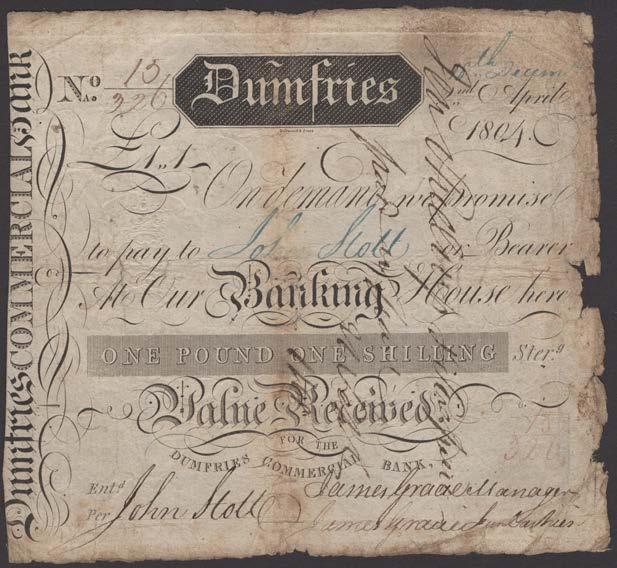 Dumfries COMMERCIAL Bank
No. 15/
A. 326
Dumfries
2nd April
1804.
£1,,1
On demand we Promise
to pay to John Stott or Bearer
At Our Banking House here
ONE POUND ONE SHILLING Sterg
Value Received
FOR THE
DUMFRIES COMMERCIAL BANK,
Entd
Per John Stott
James Gracie Manager
James Gracie Junr Cashier
15
326